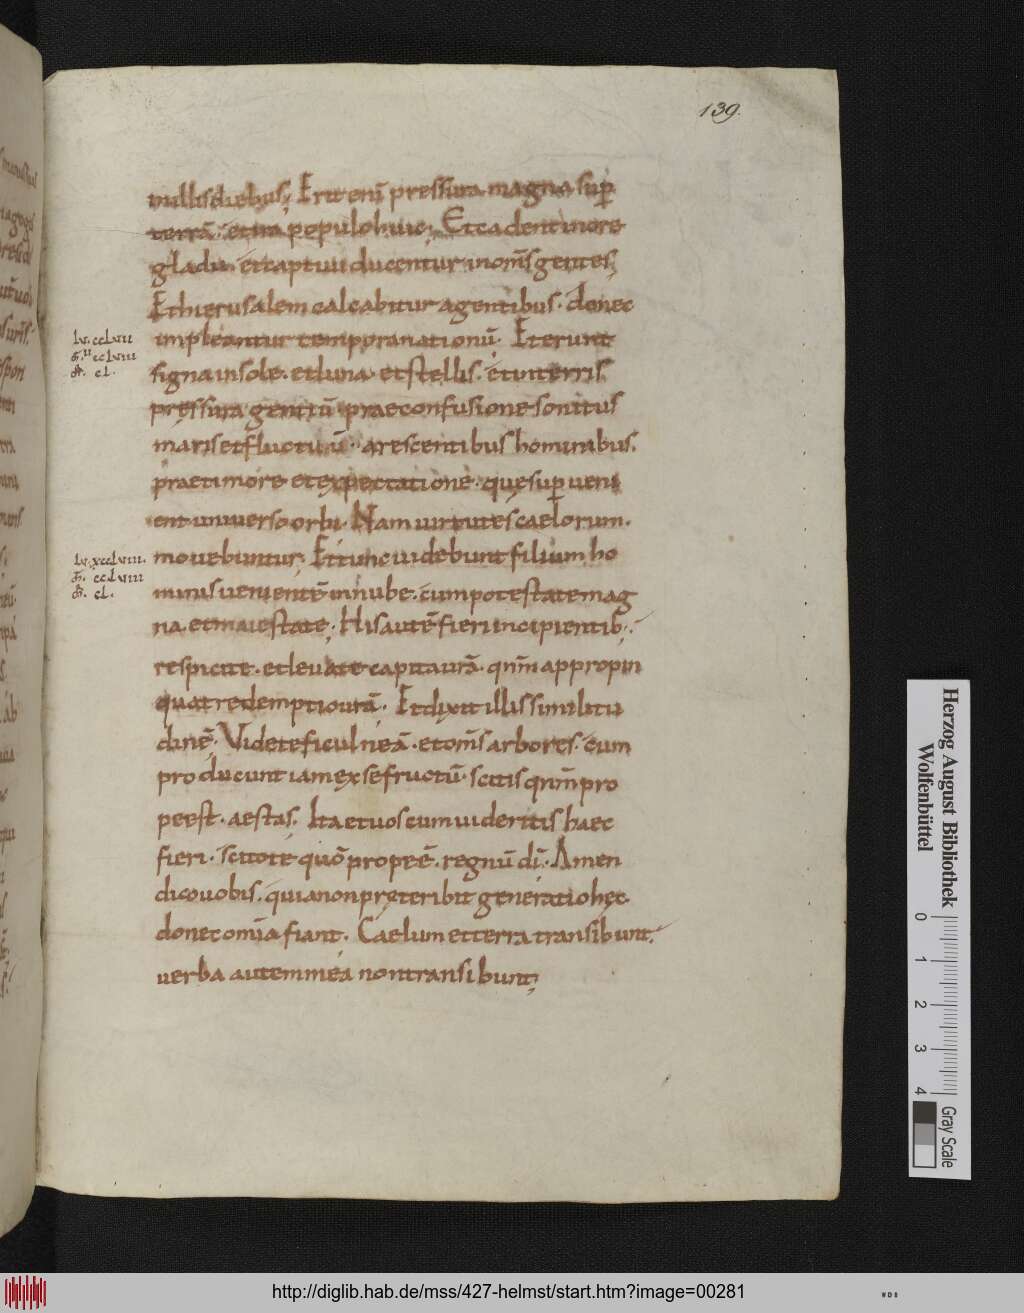 139.
inillisdiebus; Erit eni pressura magna sup
terrā. et ira populo huic; Et cadent in ore
gladii. et captivi ducentur in oms gentes;
Et hierusalem calcabitur a gentibus. donec
impleantur tempora nationū. Et erunt
signa in sole. et luna. et stellis. et in terris
pressura gentiū prae confusione sonitus
maris et fluctuū. arescentibus hominibus.
prae timore et expectatione. quę sup ueni
ent uniuerso orbi. Nam uirtutes caelorum.
mouebuntur; Et tunc uidebunt filium ho
minis uenientē in nube. cum potestate mag
na. et maiestate; His autē fieri incipientib;
respicite. et leuate capita urā. qnm appropin
quat redemptio urā. Et dixit illis similitu
dinē. Videte ficulneā. et oms arbores. cum
producunt iam ex se fructū. scitis qnm pro
pe est. aestas. Ita et uos cum uideritis haec
fieri. scitote quō prope ē. regnū di. Amen
dico uobis. quia non pręteribit generatio hęc
donec omia fiant. Caelum et terra transibunt.
uerba autem mea non transibunt;
lu. cclvii
cl.
cclviii
cl.
Herzog August Bibliothek
Wolfenbüttel
0 1 2 3 4
Gray Scale
http://diglib.hab.de/mss/427-helmst/start.htm?image=00281